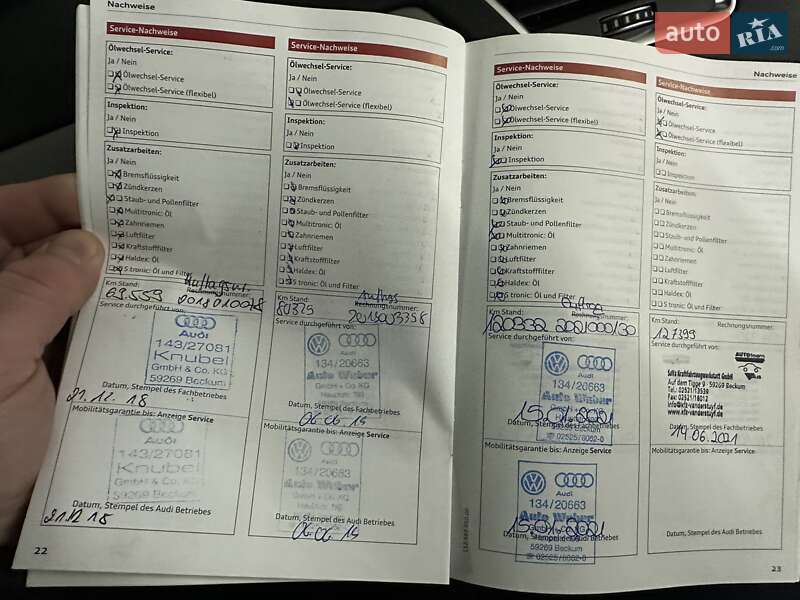 auto RIA .com
Nachweise
Service-Nachweise
Ölwechsel-Service:
Ja / Nein
Ölwechsel-Service
Ölwechsel-Service (flexibel)
Inspektion:
Ja / Nein
Inspektion
Zusatzarbeiten:
Ja / Nein
Bremsflüssigkeit
Zündkerzen
Staub- und Pollenfilter
Multitronic: Öl
Zahnriemen
Luftfilter
Kraftstofffilter
Haldex: Öl
S tronic: Öl und Filter
Km Stand:
Rechnungsnummer:
69.559
Service durchgeführt von:
Audi
143/27081
Knubel
GmbH & Co. KG
59269 Beckum
21.12.18
Datum, Stempel des Fachbetriebes
Mobilitätsgarantie bis: Anzeige Service
Audi
143/27081
Knubel
GmbH & Co. KG
59269 Beckum
Datum, Stempel des Audi Betriebes
21.12.18
22
Service-Nachweise
Ölwechsel-Service:
Ja / Nein
Ölwechsel-Service
Ölwechsel-Service (flexibel)
Inspektion:
Ja / Nein
Inspektion
Zusatzarbeiten:
Ja / Nein
Bremsflüssigkeit
Zündkerzen
Staub- und Pollenfilter
Multitronic: Öl
Zahnriemen
Luftfilter
Kraftstofffilter
Haldex: Öl
S tronic: Öl und Filter
Km Stand:
Auftrag
Rechnungsnummer:
Service durchgeführt von:
Audi
134/20663
Auto Weber
GmbH & Co KG
Datum, Stempel des Fachbetriebes
06.06.19
Mobilitätsgarantie bis: Anzeige Service
Audi
134/20663
Auto Weber
Datum, Stempel des Audi Betriebes
06.06.19
Service-Nachweise
Ölwechsel-Service:
Ja / Nein
Ölwechsel-Service
Ölwechsel-Service (flexibel)
Inspektion:
Ja / Nein
Inspektion
Zusatzarbeiten:
Ja / Nein
Bremsflüssigkeit
Zündkerzen
Staub- und Pollenfilter
Multitronic: Öl
Zahnriemen
Luftfilter
Kraftstofffilter
Haldex: Öl
S tronic: Öl und Filter
Km Stand:
Rechnungsnummer:
Service durchgeführt von:
Audi
134/20663
Auto Weber
☎ 02525/8062-0
Datum, Stempel des Fachbetriebes
Mobilitätsgarantie bis: Anzeige Service
Audi
134/20663
Auto Weber
Datum, Stempel des Audi Betriebes
59269 Beckum
☎ 02525/8062-0
Nachweise
Service-Nachweise
Ölwechsel-Service:
Ja / Nein
Ölwechsel-Service
Ölwechsel-Service (flexibel)
Inspektion:
Ja / Nein
Inspektion
Zusatzarbeiten:
Ja / Nein
Bremsflüssigkeit
Zündkerzen
Staub- und Pollenfilter
Multitronic: Öl
Zahnriemen
Luftfilter
Kraftstofffilter
Haldex: Öl
S tronic: Öl und Filter
Km Stand:
Rechnungsnummer:
127399
Service durchgeführt von:
Auf dem Tigge 9 · 59269 Beckum
Tel.: 02521/13539
Fax: 02521/18012
www.kfz-vanderstuyf.de
19.06.2021
Datum, Stempel des Fachbetriebes
Mobilitätsgarantie bis: Anzeige Service
Datum, Stempel des Audi Betriebes
23